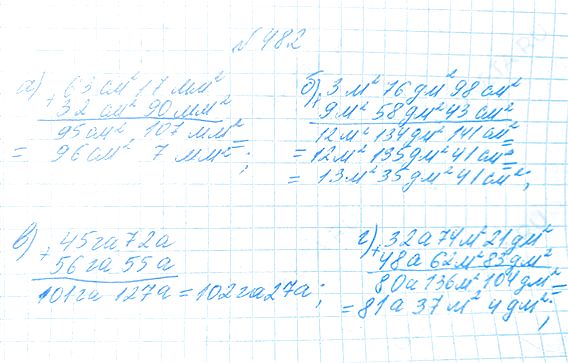 №482
а) 63 см² 17 мм²
+ 32 см² 90 мм²
95 см² 107 мм² =
= 96 см² 7 мм²;
б) 3 м² 76 дм² 98 см²
+ 9 м² 58 дм² 43 см²
12 м² 134 дм² 141 см² =
= 12 м² 135 дм² 41 см² =
= 13 м² 35 дм² 41 см²;
в) 45 га 72 а
+ 56 га 55 а
101 га 127 а = 102 га 27 а;
г) 32 а 74 м² 21 дм²
+ 48 а 62 м² 83 дм²
80 а 136 м² 104 дм² =
= 81 а 37 м² 4 дм²;